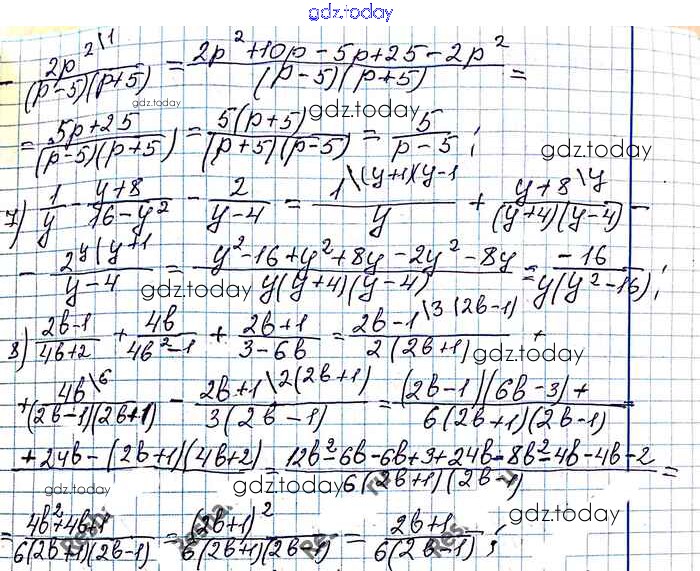 gdz.today
- 2p^2\1/((p-5)(p+5)) = (2p^2+10p-5p+25-2p^2)/((p-5)(p+5)) =
gdz.today
= (5p+25)/((p-5)(p+5)) = 5(p+5)/((p+5)(p-5)) = 5/(p-5);
gdz.today
gdz.today
7) 1/y - (y+8)/(16-y^2) - 2/(y-4) = 1\(y+4)(y-4/y + y+8\y/((y+4)(y-4)) -
- 2\y(y+1/(y-4) = (y^2-16+y^2+8y-2y^2-8y)/(y(y+4)(y-4)) = -16/(y(y^2-16));
gdz.today
8) (2b-1)/(4b+2) + 4b/(4b^2-1) + (2b+1)/(3-6b) = 2b-1\3(2b-1)/(2(2b+1)) +
gdz.today
+ 4b\6/((2b-1)(2b+1)) - 2b+1\2(2b+1)/(3(2b-1)) = (2b-1)(6b-3)+/(6(2b+1)(2b-1))
+24b-(2b+1)(4b+2) = (12b^2-6b-6b+3+24b-8b^2-4b-4b-2)/(6(2b+1)(2b-1)) =
gdz.today
gdz.today
= (4b^2+4b+1)/(6(2b+1)(2b-1)) = (2b+1)^2/(6(2b+1)(2b-1)) = (2b+1)/(6(2b-1));
gdz.today